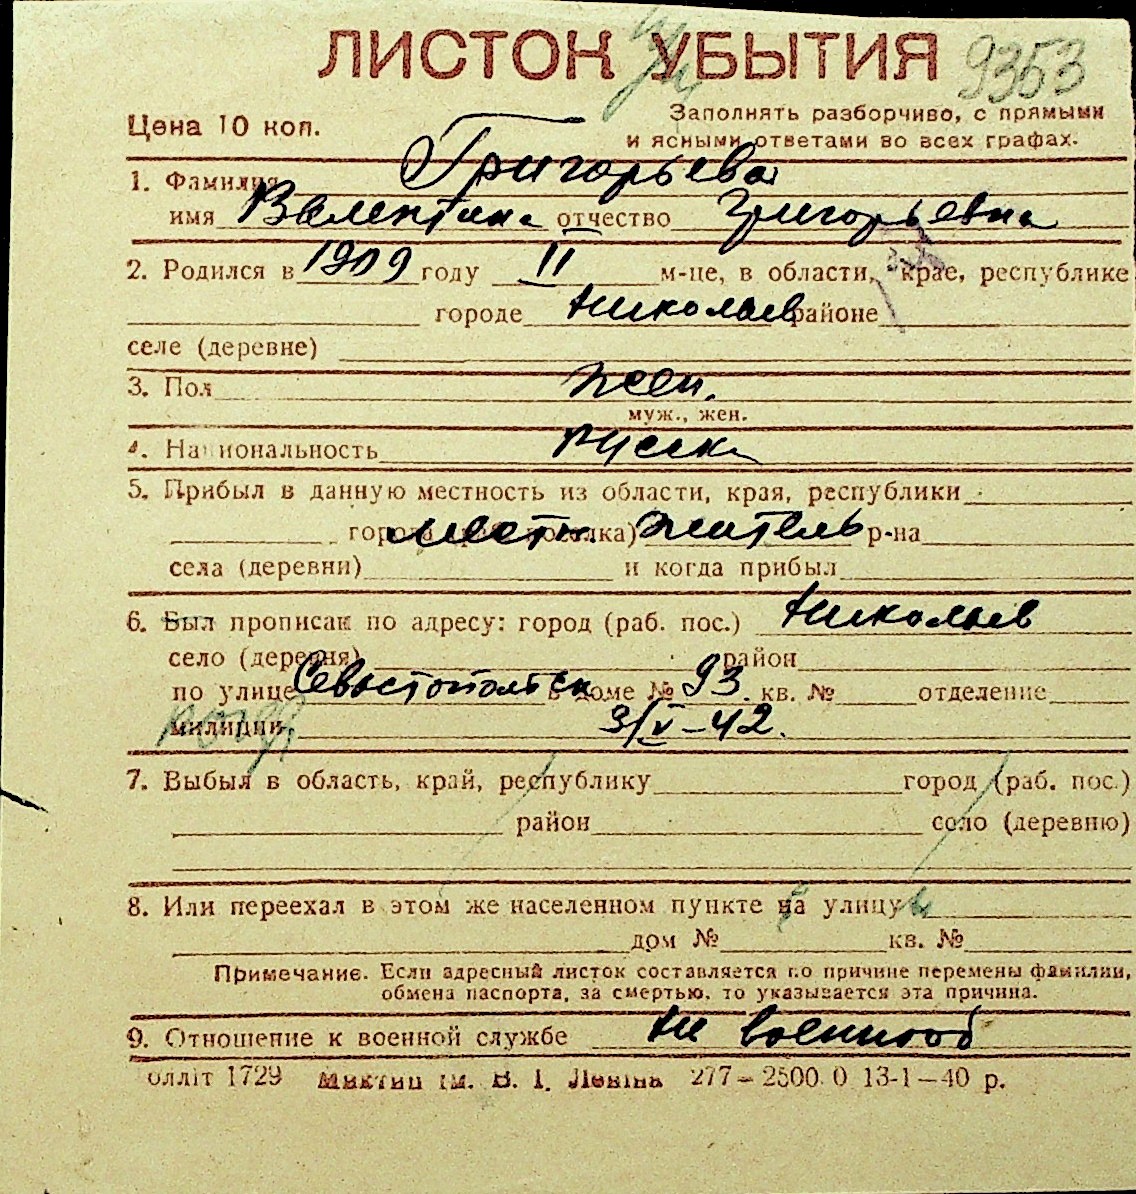 ЛИСТОК УБЫТИЯ 9353
Цена 10 коп.
Заполнять разборчиво, с прямыми
и ясными ответами во всех графах.
1. Фамилия Григорьева
имя Валентина отчество Григорьевна
2. Родился в 1909 году II м-це, в области, крае, республике
городе Николаев районе
селе (деревне)
3. Пол жен.
муж., жен.
4. Национальность русск.
5. Прибыл в данную местность из области, края, республики
города местн. житель р-на
села (деревни) и когда прибыл
6. Был прописан по адресу: город (раб. пос.) Николаев
село (деревня) район
по улице Севастопольск в доме № 93 кв. № отделение
милиции 3/V-42.
7. Выбыл в область, край, республику город (раб. пос.)
район село (деревню)
8. Или переехал в этом же населенном пункте на улицу
дом № кв. №
Примечание. Если адресный листок составляется по причине перемены фамилии,
обмена паспорта, за смертью, то указывается эта причина.
9. Отношение к военной службе не военнооб
олліт 1729 ім. В. І. Леніна 277—2500.0 13-1—40 р.